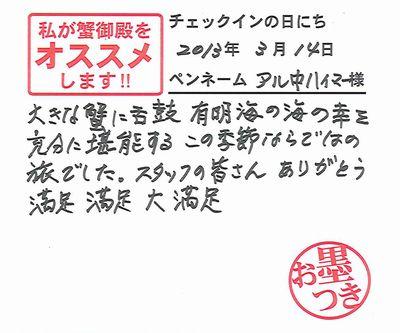 私が蟹御殿を
オススメ
します!!
チェックインの日にち
2013年 3月 14日
ペンネーム アル中ハイマー様
大きな蟹に舌鼓 有明海の海の幸を
充分に堪能する この季節ならではの
旅でした。スタッフの皆さん ありがとう
満足 満足 大満足
お墨つき